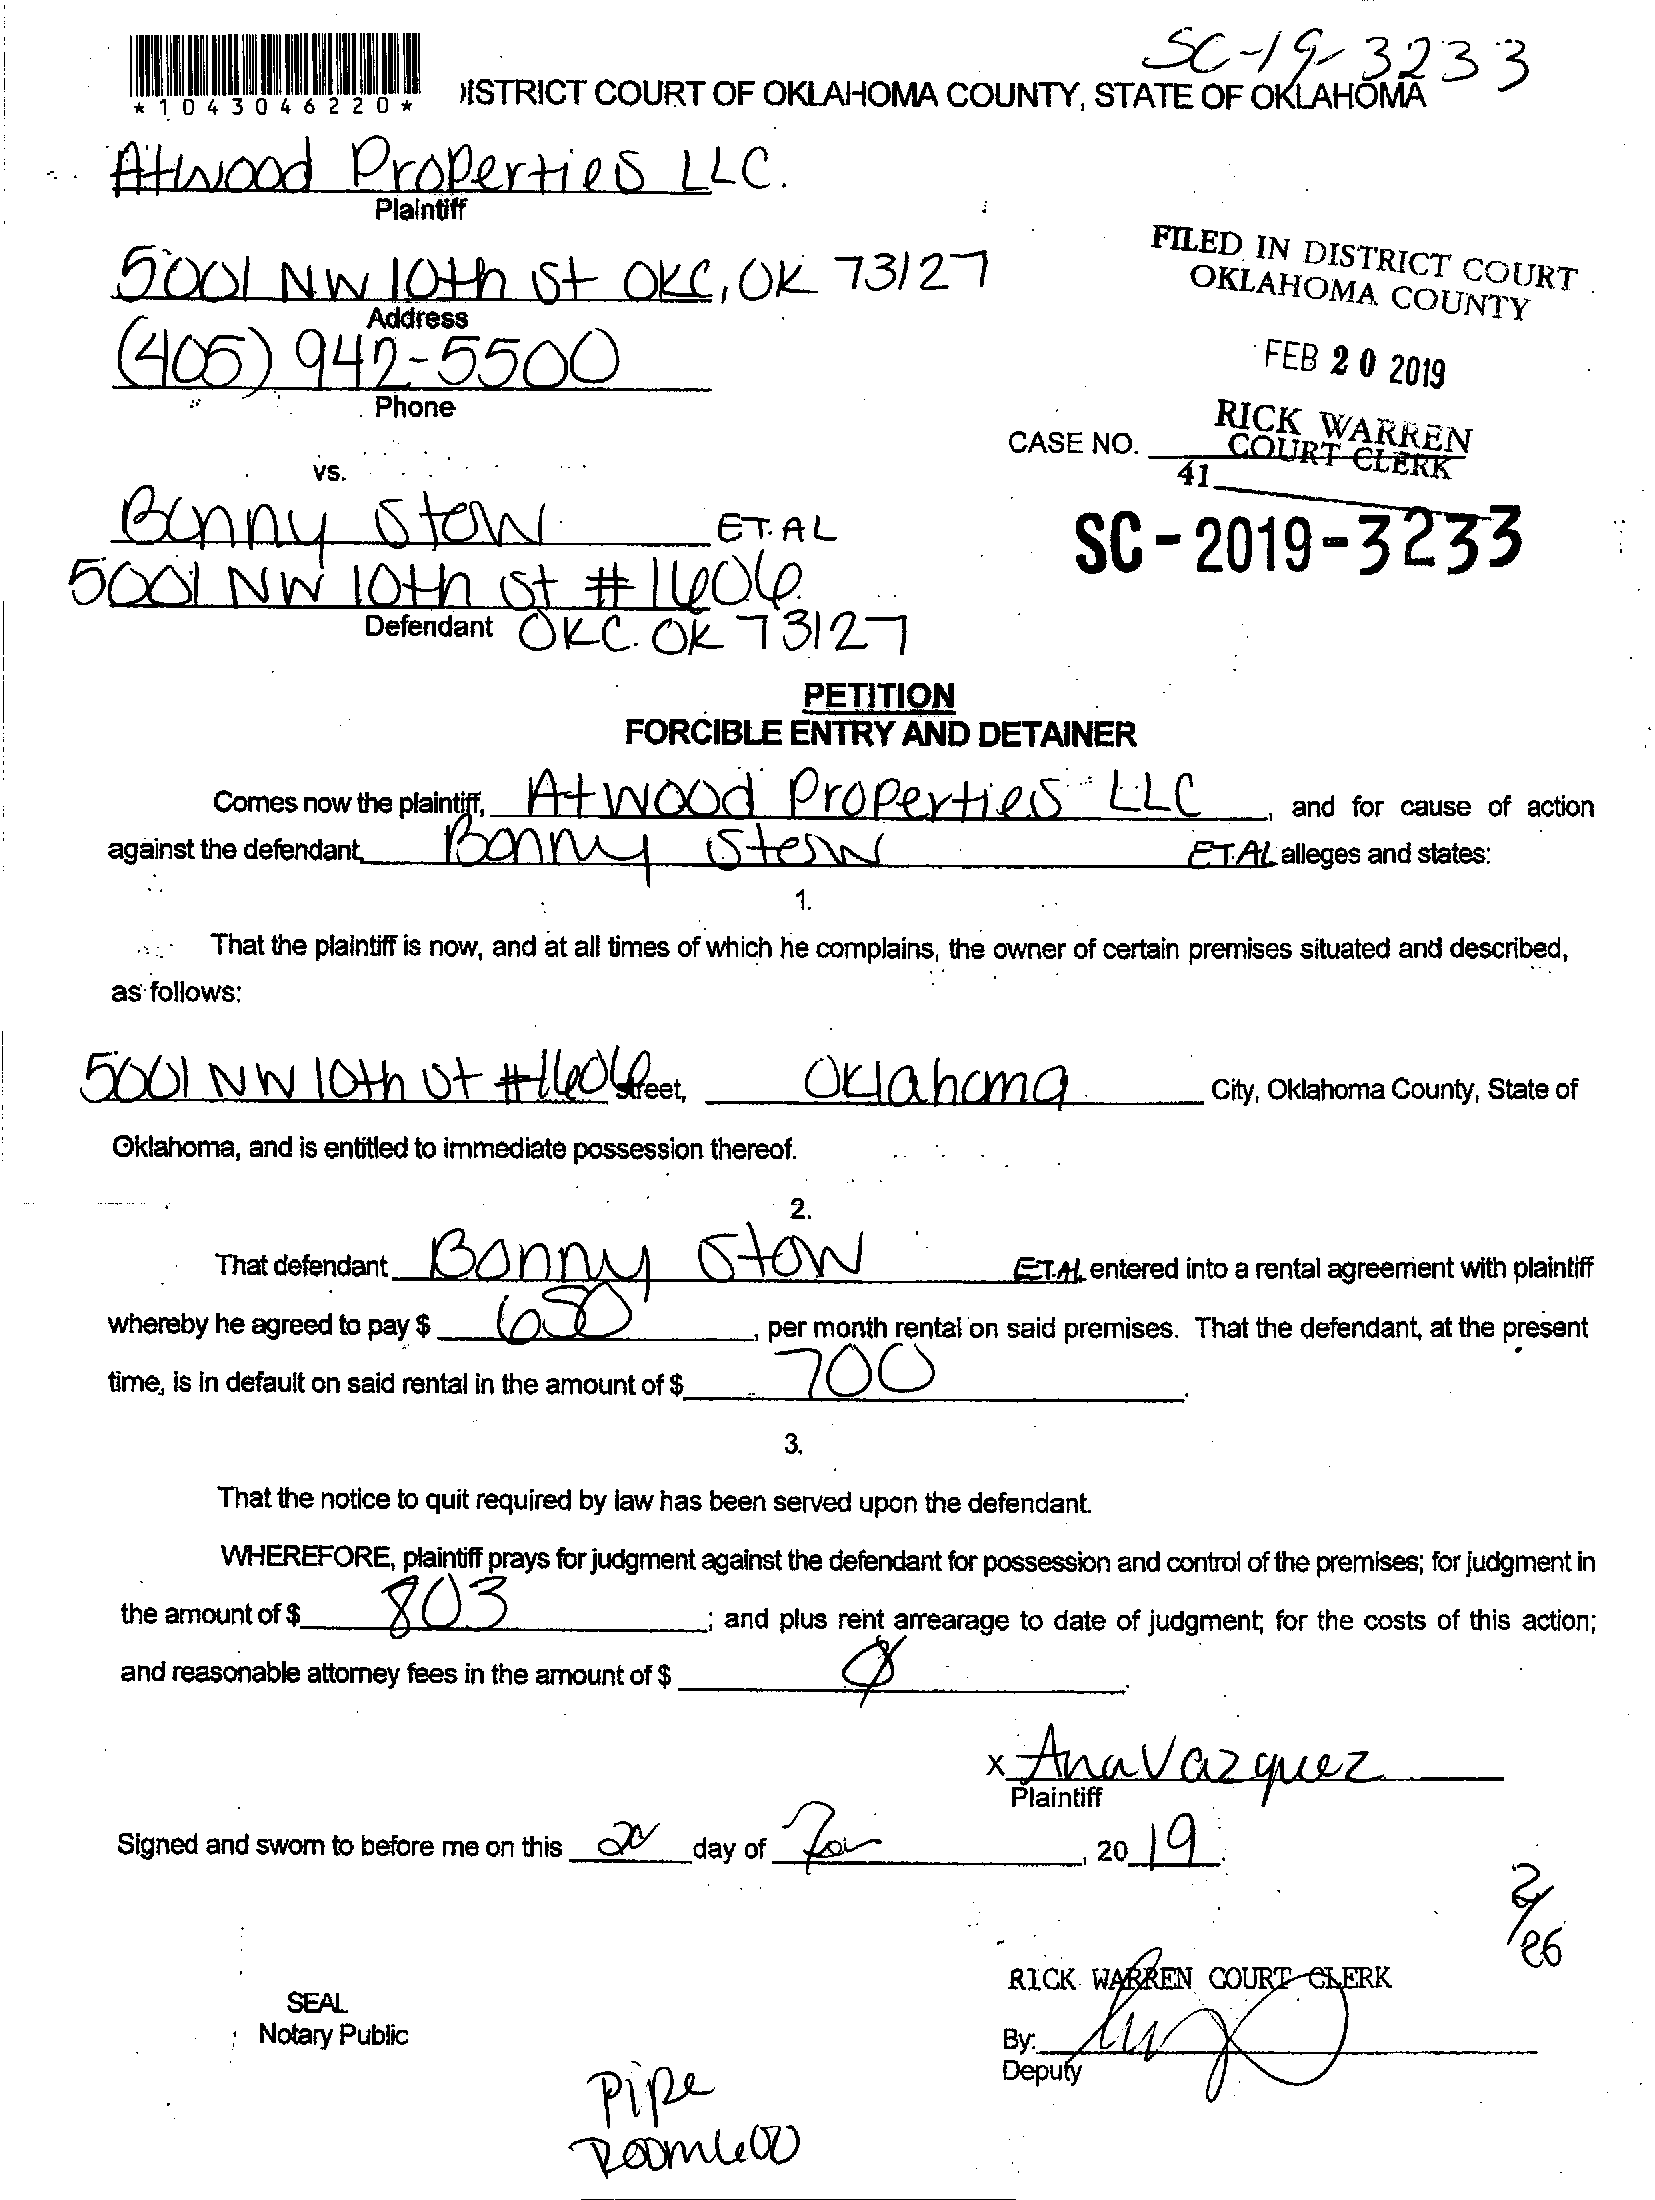 SC-19-3233
*1043046220*
ISTRICT COURT OF OKLAHOMA COUNTY, STATE OF OKLAHOMA
Atwood Properties LLC.
Plaintiff
5001 NW 10th St OKC, OK 73127
Address
(405) 942-5500
Phone
FILED IN DISTRICT COURT
OKLAHOMA COUNTY
FEB 20 2019
RICK WARREN
COURT CLERK
CASE NO.
41
vs.
SC-2019-3233
Bonny Stow ET.AL
5001 NW 10th St #1606
Defendant OKC. OK 73127
PETITION
FORCIBLE ENTRY AND DETAINER
Comes now the plaintiff, Atwood Properties LLC, and for cause of action
against the defendant, Bonny Stow ET.AL alleges and states:
1.
That the plaintiff is now, and at all times of which he complains, the owner of certain premises situated and described,
as follows:
5001 NW 10th St #1606 Street, Oklahoma City, Oklahoma County, State of
Oklahoma, and is entitled to immediate possession thereof.
2.
That defendant Bonny Stow ET.AL entered into a rental agreement with plaintiff
whereby he agreed to pay $ 650, per month rental on said premises. That the defendant, at the present
time, is in default on said rental in the amount of $ 700.
3.
That the notice to quit required by law has been served upon the defendant.
WHEREFORE, plaintiff prays for judgment against the defendant for possession and control of the premises; for judgment in
the amount of $ 803; and plus rent arrearage to date of judgment; for the costs of this action;
and reasonable attorney fees in the amount of $
x Ana Vazquez
Plaintiff
Signed and sworn to before me on this 20 day of , 2019.
2/26
RICK WARREN COURT CLERK
SEAL
Notary Public
By:
Deputy
Pipe
Room 600